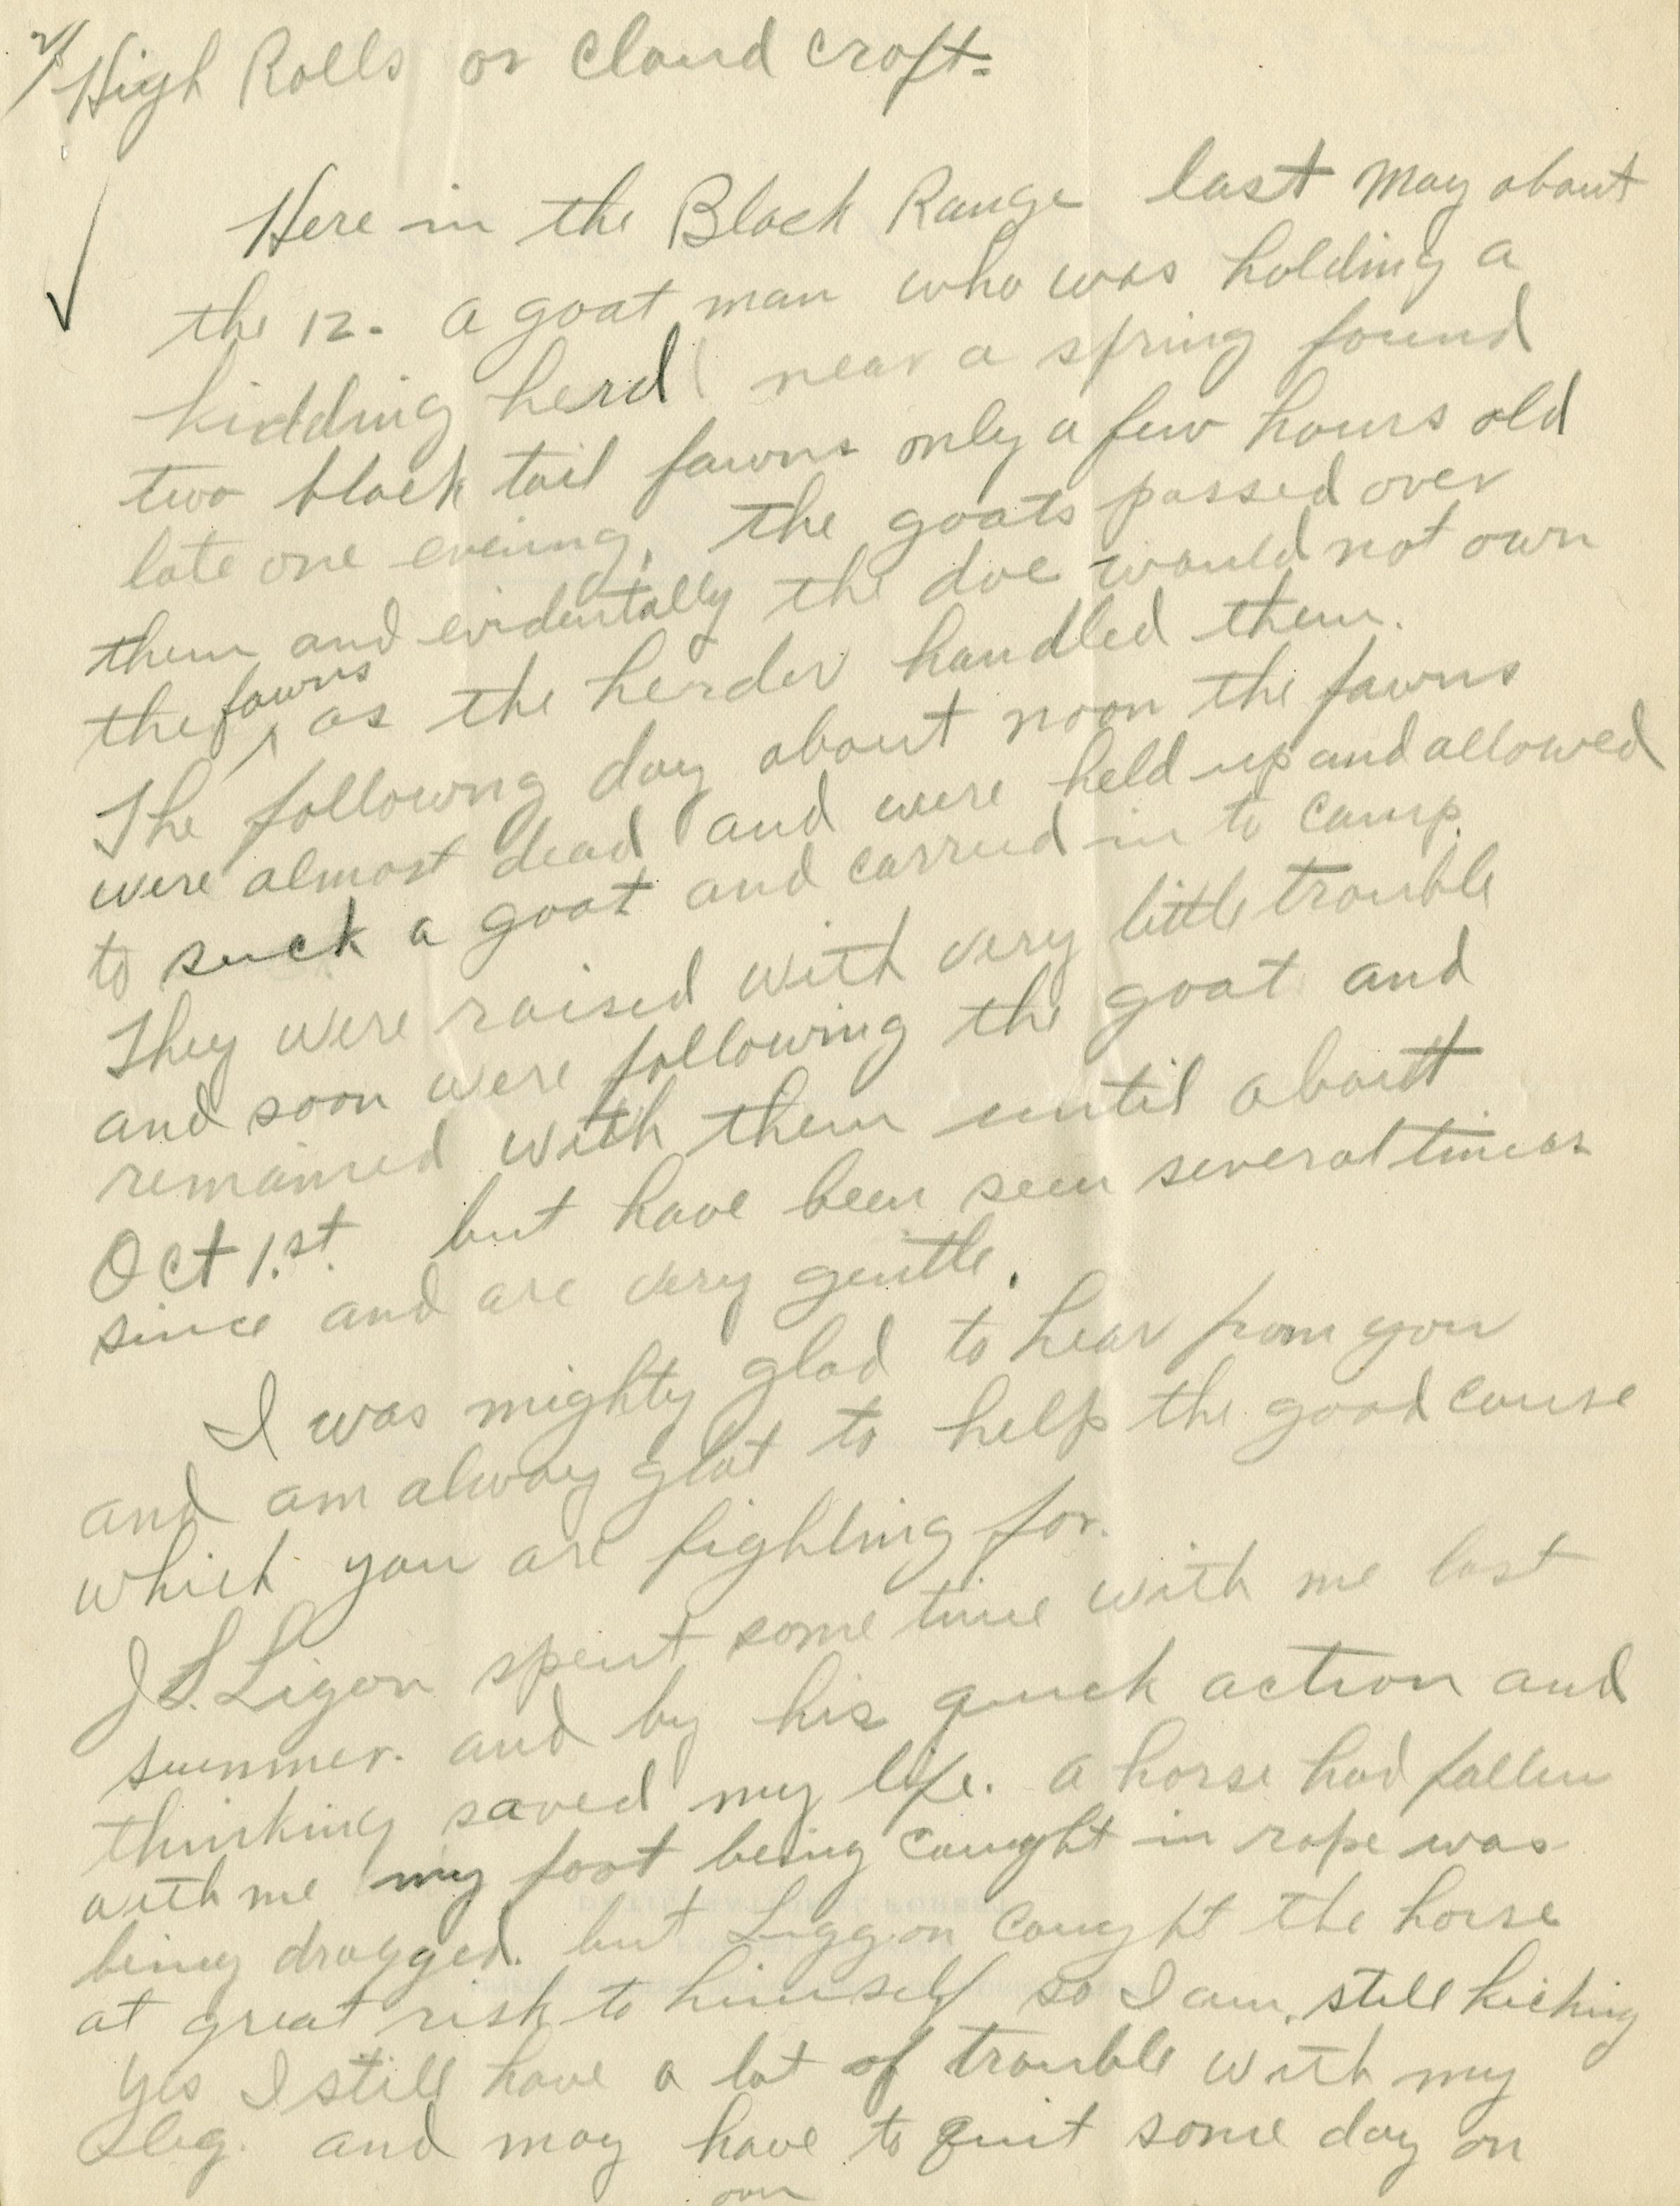 2/
High Rolls or Cloud croft.
Here in the Black Range last May about
the 12. a goat man who was holding a
kidding herd near a spring found
two black tail fawns only a few hours old
late one evening, the goats passed over
them and evidentally the doe would not own
the fawns as the herder handled them.
The following day about noon the fawns
were almost dead and were held up and allowed
to suck a goat and carried in to camp.
They were raised with very little trouble
and soon were following the goat and
remained with them until about
Oct 1.st. but have been seen several times
since and are very gentle.
I was mighty glad to hear from you
and am alway glat to help the good cause
which you are fighting for.
J S. Ligon spent some time with me last
summer. and by his quick action and
thinking saved my life. a horse had fallen
with me my foot being caught in rope was
being dragged. but Liggon caught the horse
at great risk to himself so I am still kicking
yes I still have a lot of trouble with my
leg. and may have to quit some day on
over